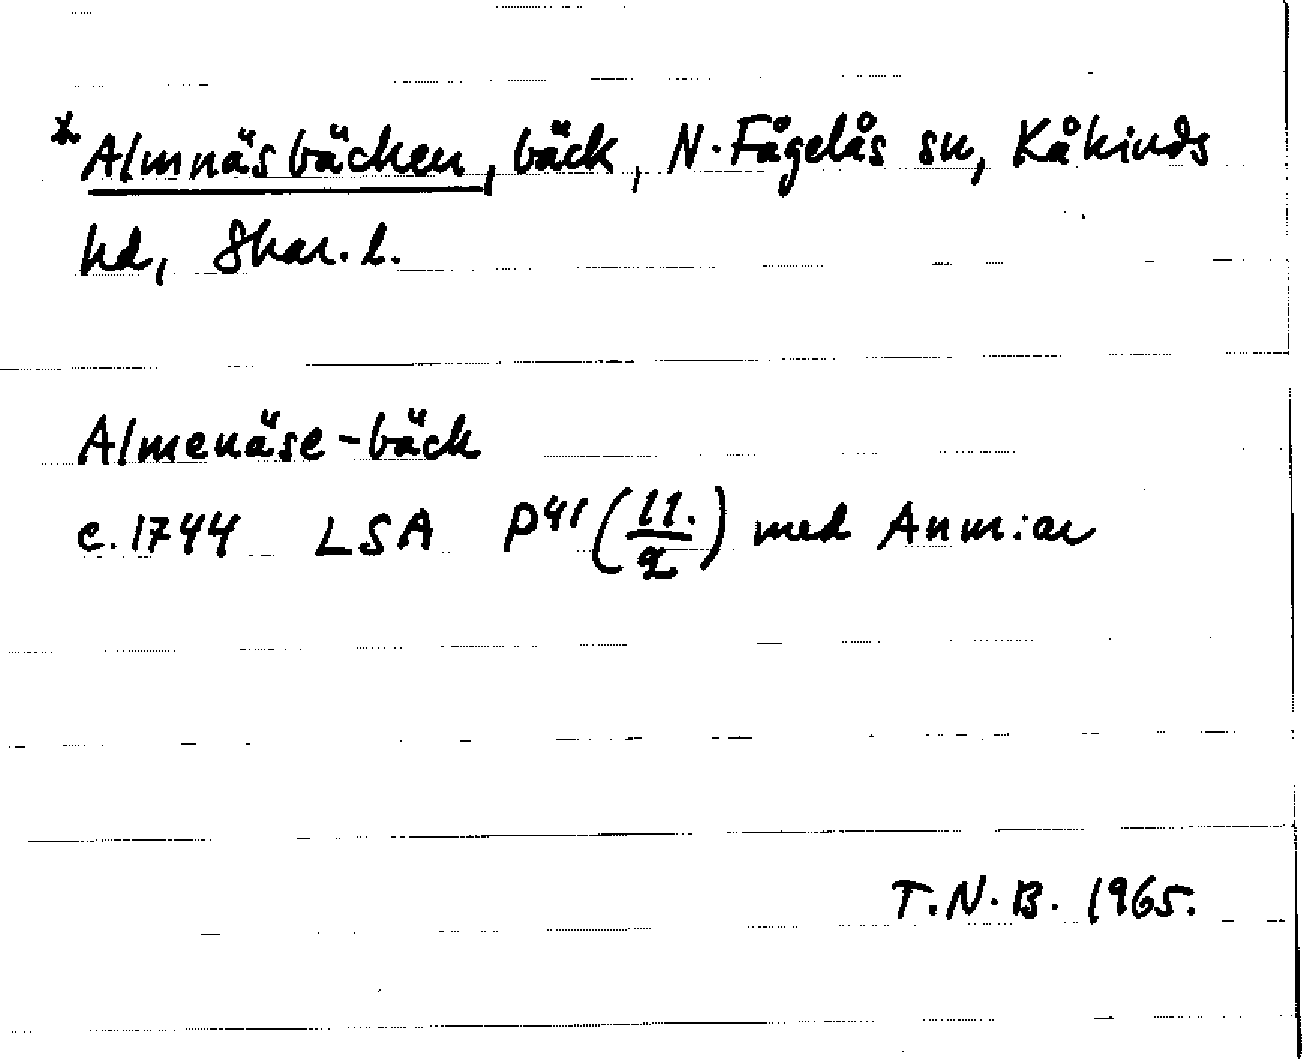 *Almnäsbäcken, bäck, N. Fågelås sn, Kåkinds
hd, Skar. l.
Almenäse-bäck
c. 1744 LSA P41 (11./2) med Anm:ar
T.N.B. 1965.